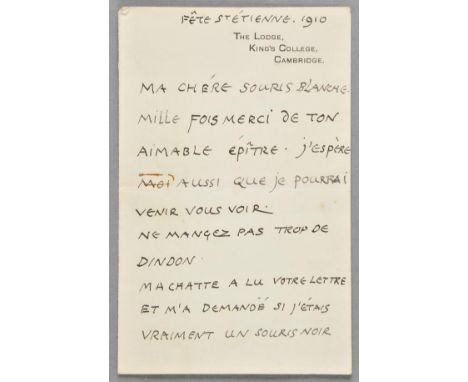 FÊTE ST ÉTIENNE. 1910
THE LODGE,
KING'S COLLEGE,
CAMBRIDGE.
MA CHÉRE SOURIS BLANCHE.
MILLE FOIS MERCI DE TON
AIMABLE ÉPÎTRE. J'ESPÈRE
MOI AUSSI QUE JE POURRAI
VENIR VOUS VOIR.
NE MANGEZ PAS TROP DE
DINDON.
MA CHATTE A LU VOTRE LETTRE
ET M'A DEMANDÉ SI J'ÉTAIS
VRAIMENT UN SOURIS NOIR